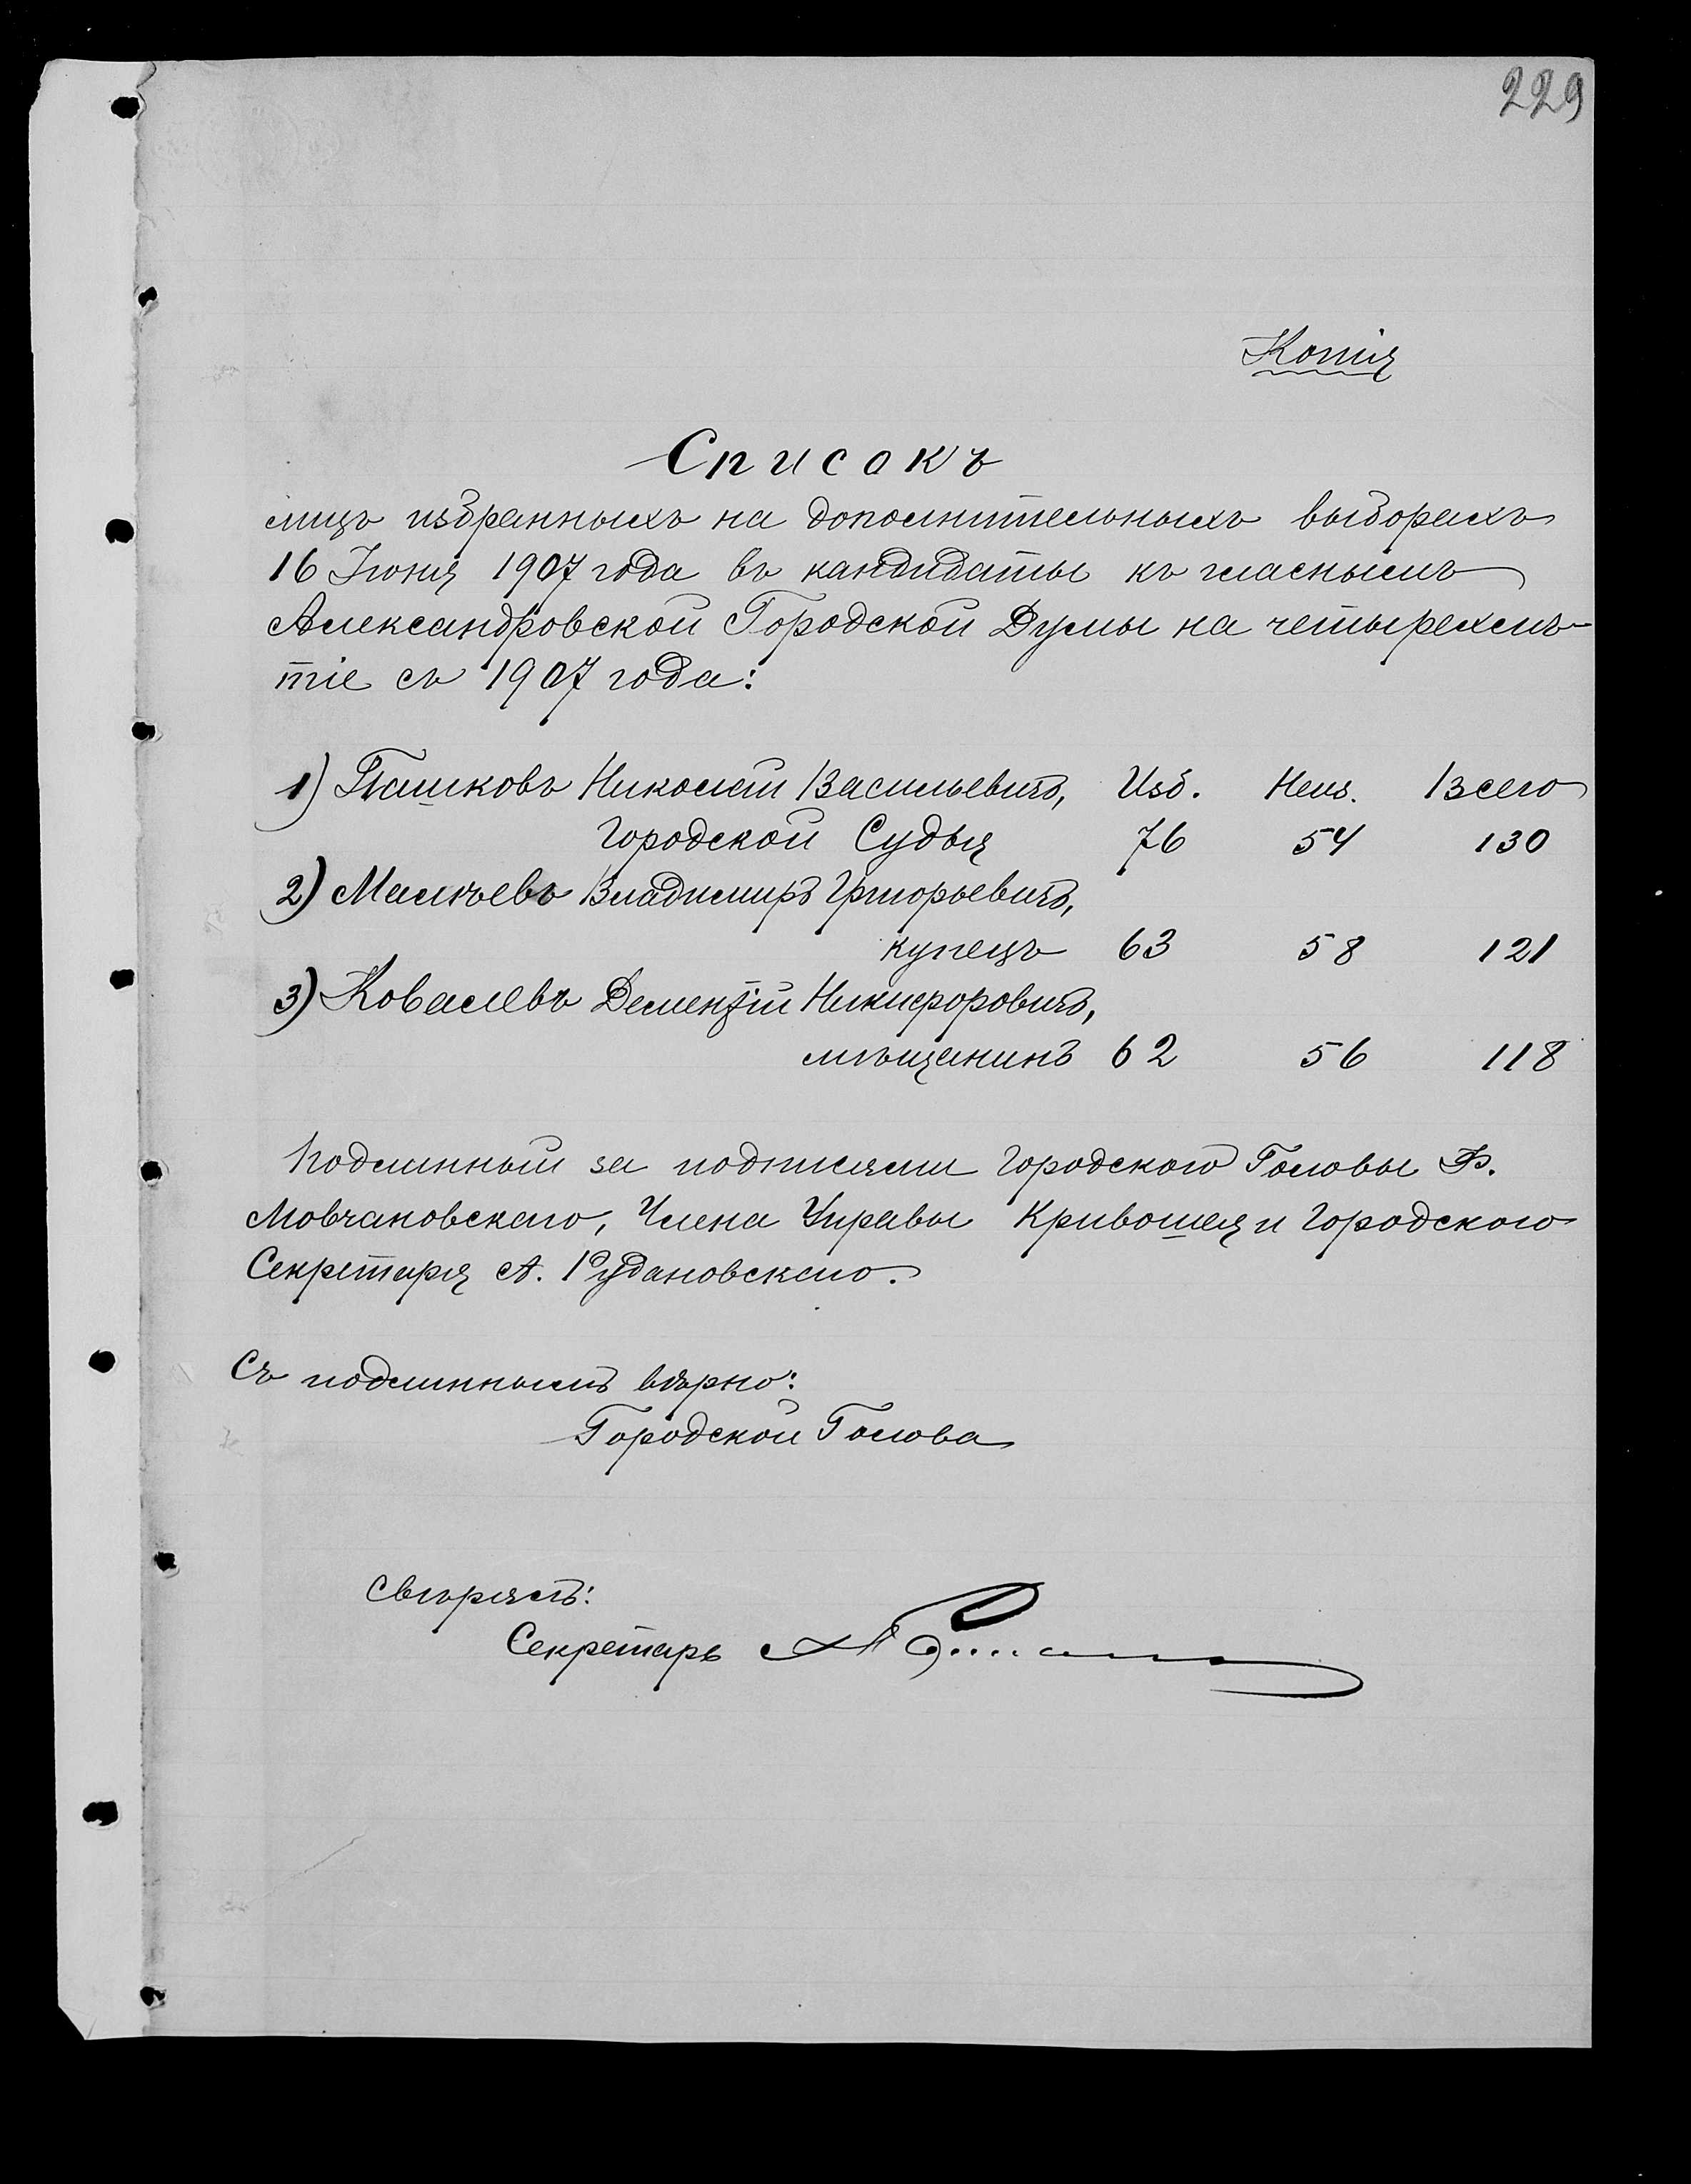 229
Копія
Списокъ
лицъ избранныхъ на дополнительныхъ выборахъ
16 Іюня 1907 года въ кандидаты къ гласнымъ
Александровской Городской Думы на четырехлѣ-
тіе съ 1907 года:
1) Пашковъ Николай Васильевичъ, Изб. Неиз. Всего
Городской Судья 76 54 130
2) Малѣевъ Владимиръ Григорьевичъ,
купецъ 63 58 121
3) Ковалевъ Дементій Никифоровичъ,
мѣщанинъ 62 56 118
Подлинный за подписями Городского Головы Ф.
Мовчановскаго, Члена Управы Кривошея и Городского
Секретаря А. Рудановскаго.
Съ подлиннымъ вѣрно:
Городской Голова
Свѣрялъ:
Секретарь